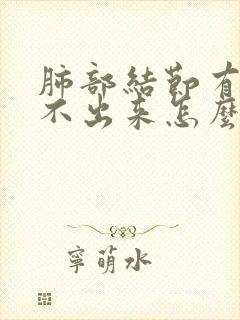 肺部結節有
不出来怎麼
寧萌水